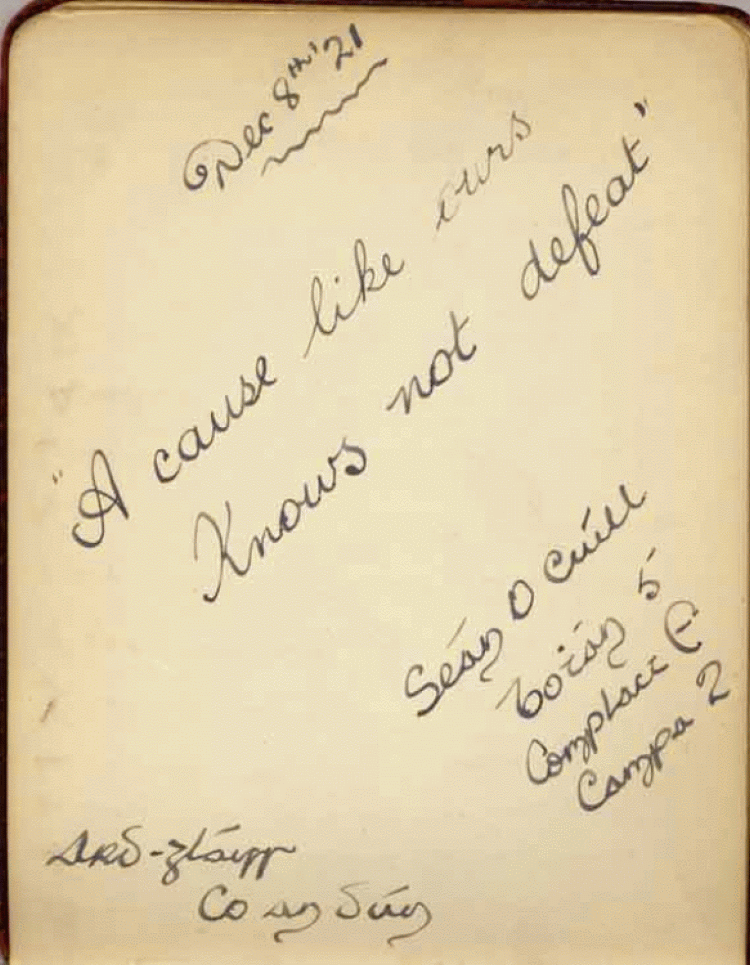 Dec 8th '21
"A cause like ours
Knows not defeat"
Seán O Cúill
boṫán 5
Complact E
Campa 2
Ard-gláiss
Co an Dúin